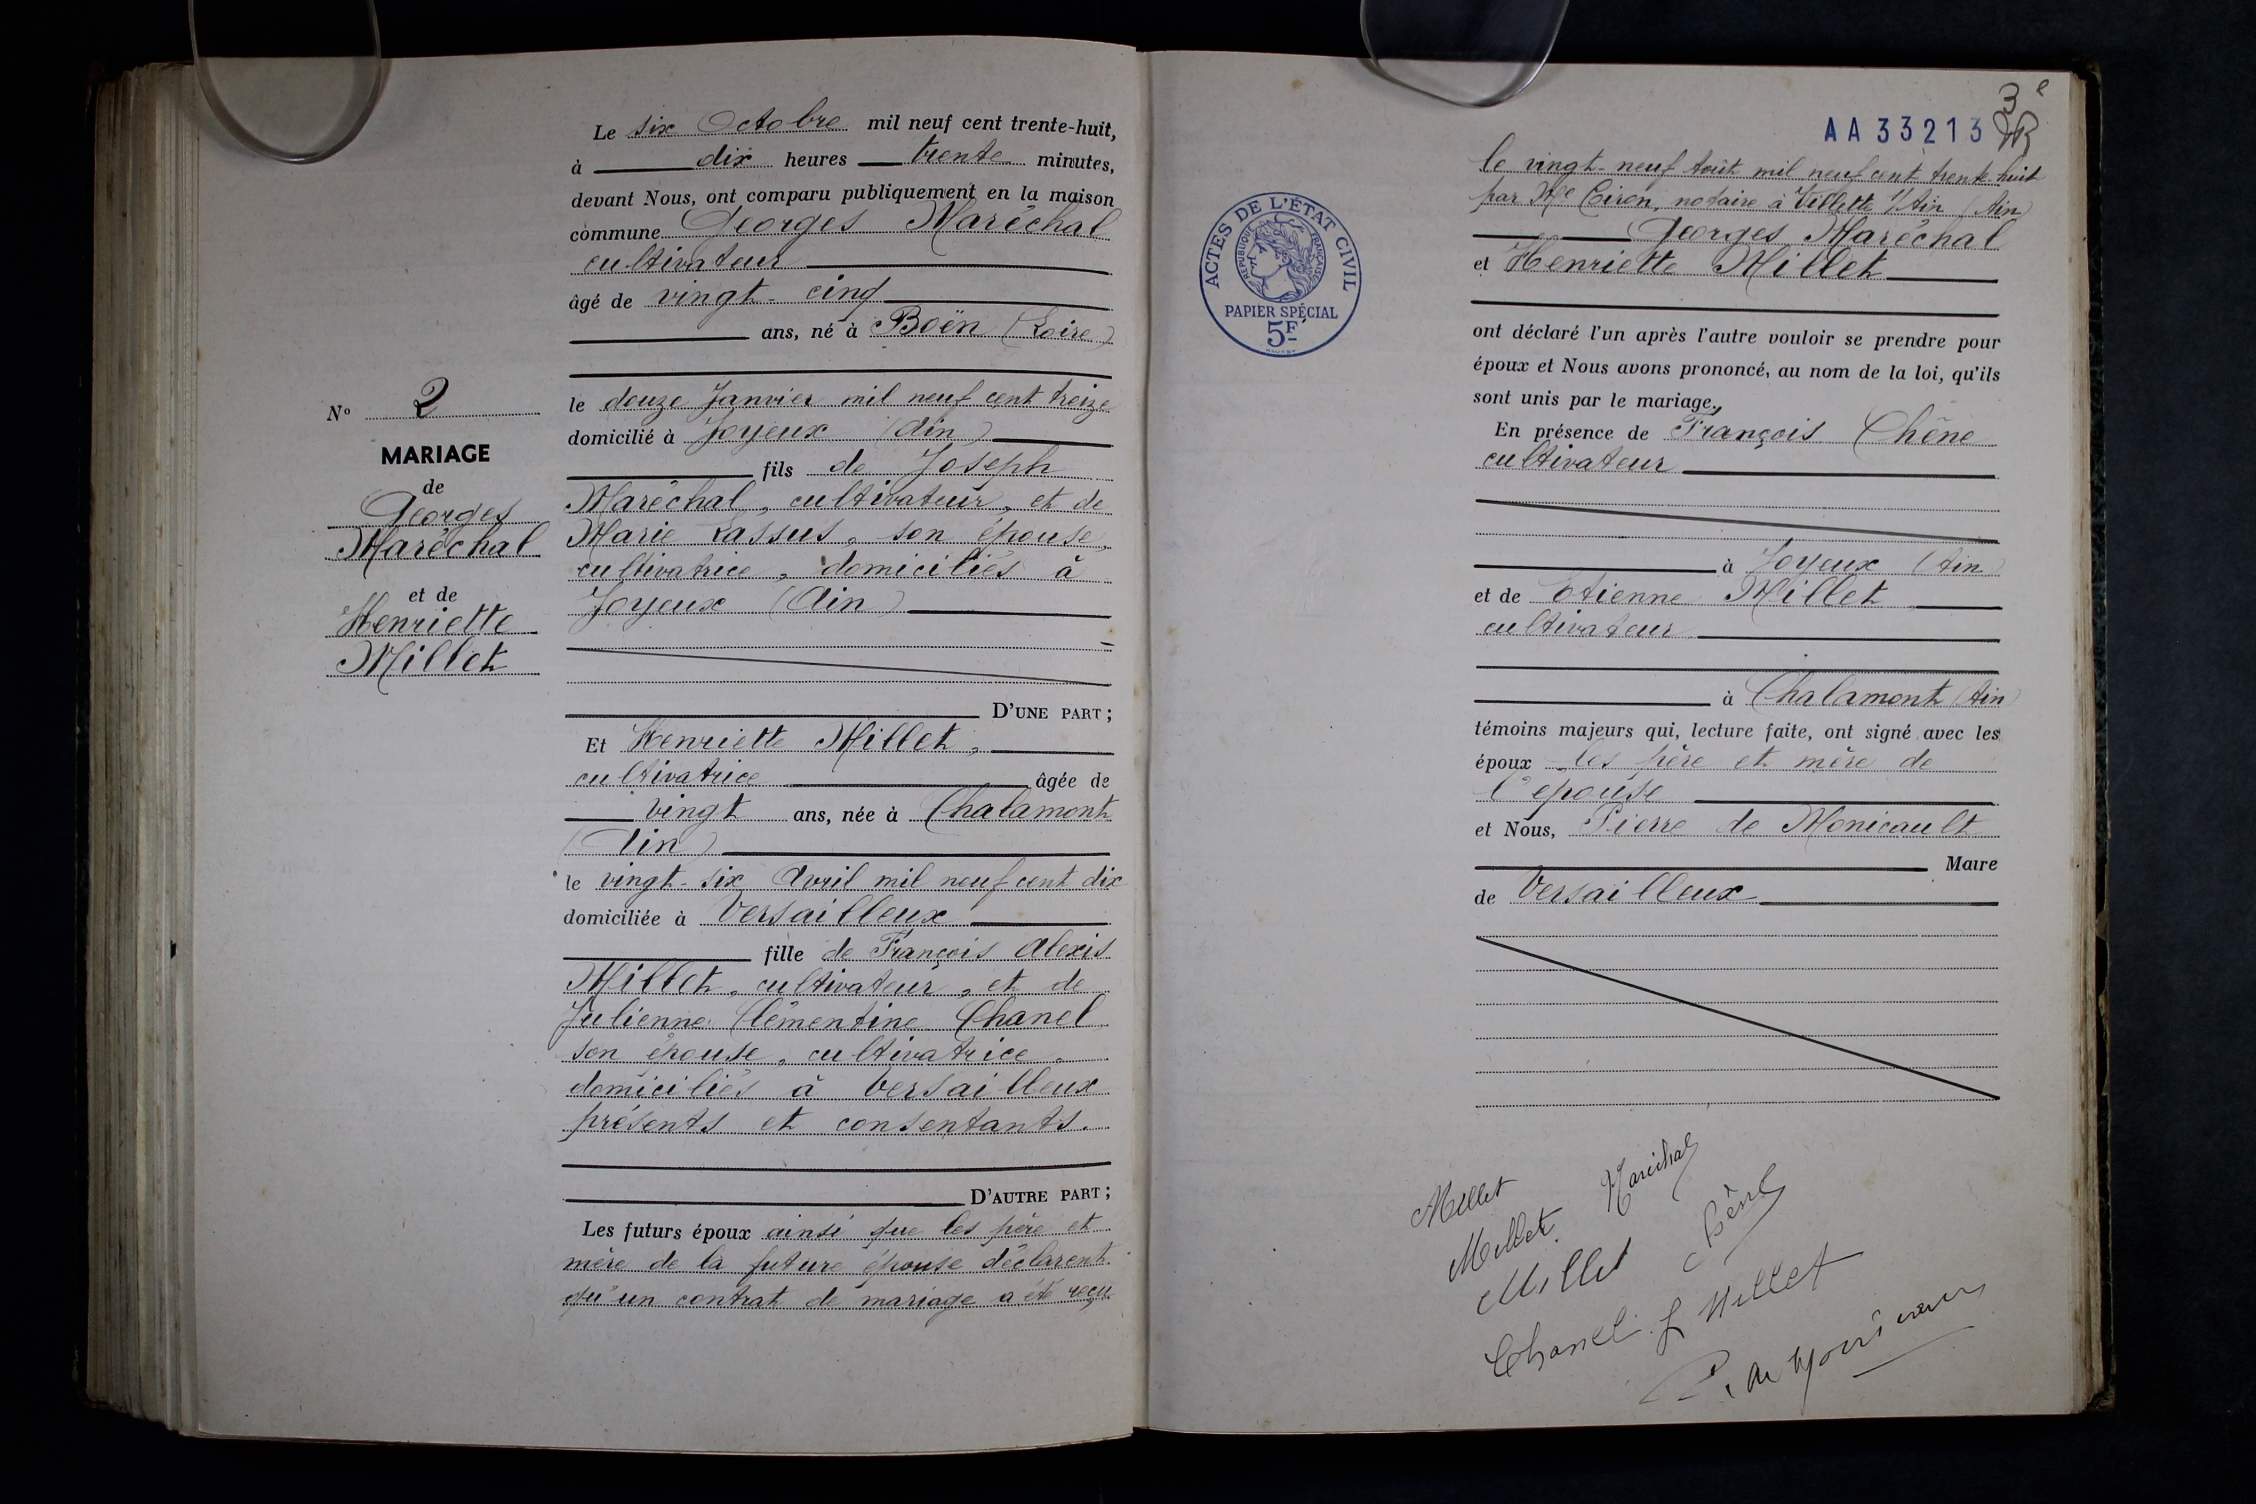 Le six Octobre mil neuf cent trente-huit,
à dix heures trente minutes,
devant Nous, ont comparu publiquement en la maison
commune Georges Maréchal
cultivateur
âgé de vingt-cinq
ans, né à Boën (Loire)
le douze Janvier mil neuf cent treize
domicilié à Joyeux (Ain)
fils de Joseph
Maréchal, cultivateur, et de
Marie Lassus, son épouse,
cultivatrice, domiciliés à
Joyeux (Ain)
D'UNE PART;
Et Henriette Millet,
cultivatrice âgée de
vingt ans, née à Chalamont
(Ain)
le vingt-six Avril mil neuf cent dix
domiciliée à Versailleux
fille de François Alexis
Millet, cultivateur, et de
Julienne Clémentine Chanel
son épouse, cultivatrice,
domiciliés à Versailleux
présents et consentants.
D'AUTRE PART;
Les futurs époux ainsi que les père et
mère de la future épouse déclarent
qu'un contrat de mariage a été reçu
N° 2
MARIAGE
de
Georges
Maréchal
et de
Henriette
Millet
3e
AA33213
ACTES DE L'ÉTAT CIVIL
RÉPUBLIQUE FRANÇAISE
PAPIER SPÉCIAL
5F
le vingt-neuf Août mil neuf cent trente-huit
par Me Ciron, notaire à Villette s/Ain (Ain)
Georges Maréchal
et Henriette Millet
ont déclaré l'un après l'autre vouloir se prendre pour
époux et Nous avons prononcé, au nom de la loi, qu'ils
sont unis par le mariage,
En présence de François Chêne
cultivateur
à Joyeux (Ain)
et de Etienne Millet
cultivateur
à Chalamont (Ain)
témoins majeurs qui, lecture faite, ont signé avec les
époux les père et mère de
l'épouse
et Nous, Pierre de Monicault
Maire
de Versailleux
Millet
Maréchal
Millet
Chêne
Millet
Chanel f Millet
P. de Monicault